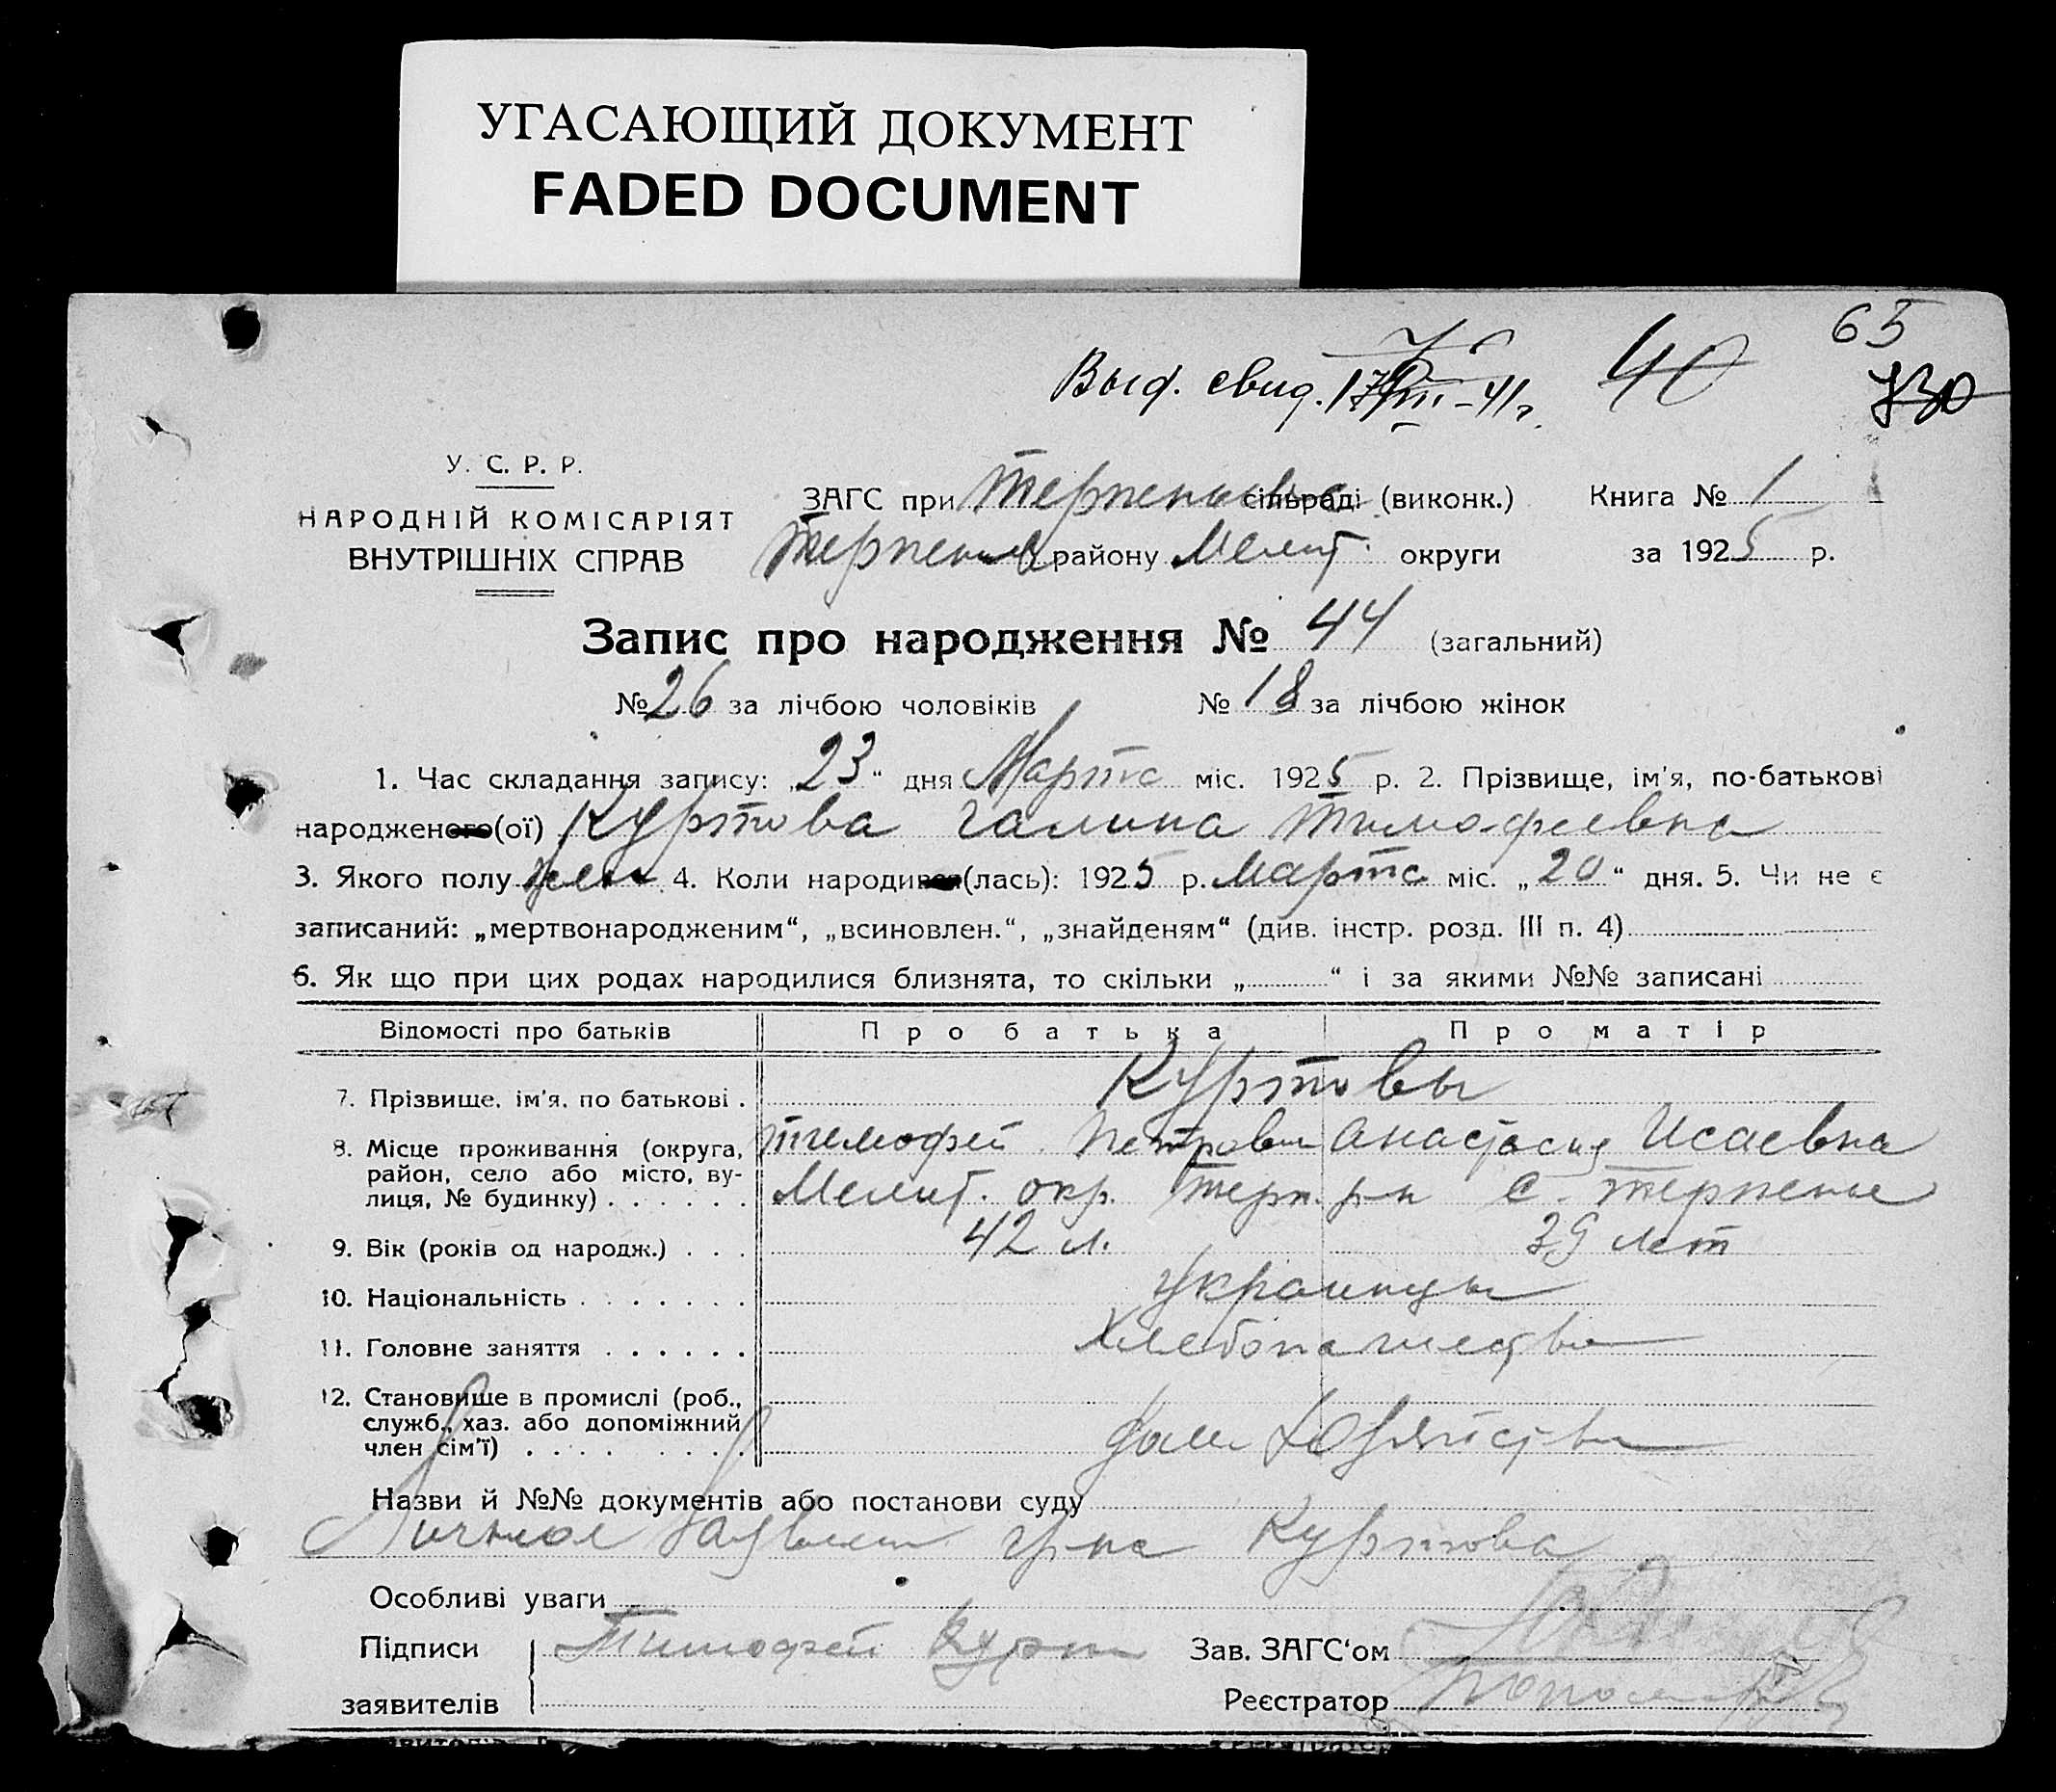 УГАСАЮЩИЙ ДОКУМЕНТ
FADED DOCUMENT
65
Выд. свид. 41г. 40
730
У. С. Р. Р.
НАРОДНІЙ КОМІСАРІЯТ
ВНУТРІШНІХ СПРАВ
ЗАГС при Терпеньевс сільраді (виконк.) Книга № 1
Терпеньев району Мелит. округи за 1925 р.
Запис про народження № 44 (загальний)
№ 26 за лічбою чоловіків № 18 за лічбою жінок
1. Час складання запису: „23“ дня Марта міс. 1925 р. 2. Прізвище, ім'я, по-батькові
народженого(ої) Куртова Галина Тимофеевна
3. Якого полу жен 4. Коли народився(лась): 1925 р. Марта міс. „20“ дня. 5. Чи не є
записаний: „мертвонародженим“, „всиновлен.“, „знайденям“ (див. інстр. розд. III п. 4)
6. Як що при цих родах народилися близнята, то скільки „ “ і за якими №№ записані
Відомості про батьків Про батька Про матір
7. Прізвище, ім'я, по батькові . Куртовы
Тимофей Петрович Анастасия Исаевна
8. Місце проживання (округа, район, село або місто, ву-
лиця, № будинку) . . . . . . Мелит. окр. Терп. р-н с. Терпенье
9. Вік (років од народж.) . . . 42 л. 39 лет
10. Національність . . . . . . . Украинцы
11. Головне заняття . . . . . . Хлебопашество
12. Становище в промислі (роб.,
служб., хаз. або допоміжний
член сім'ї) . . . . . . . . дом хозяйство
Назви й №№ документів або постанови суду
Личное заявлен. гр-на Куртова
Особливі уваги
Підписи Тимофей Курт Зав. ЗАГС‘ом
заявителів Реєстратор